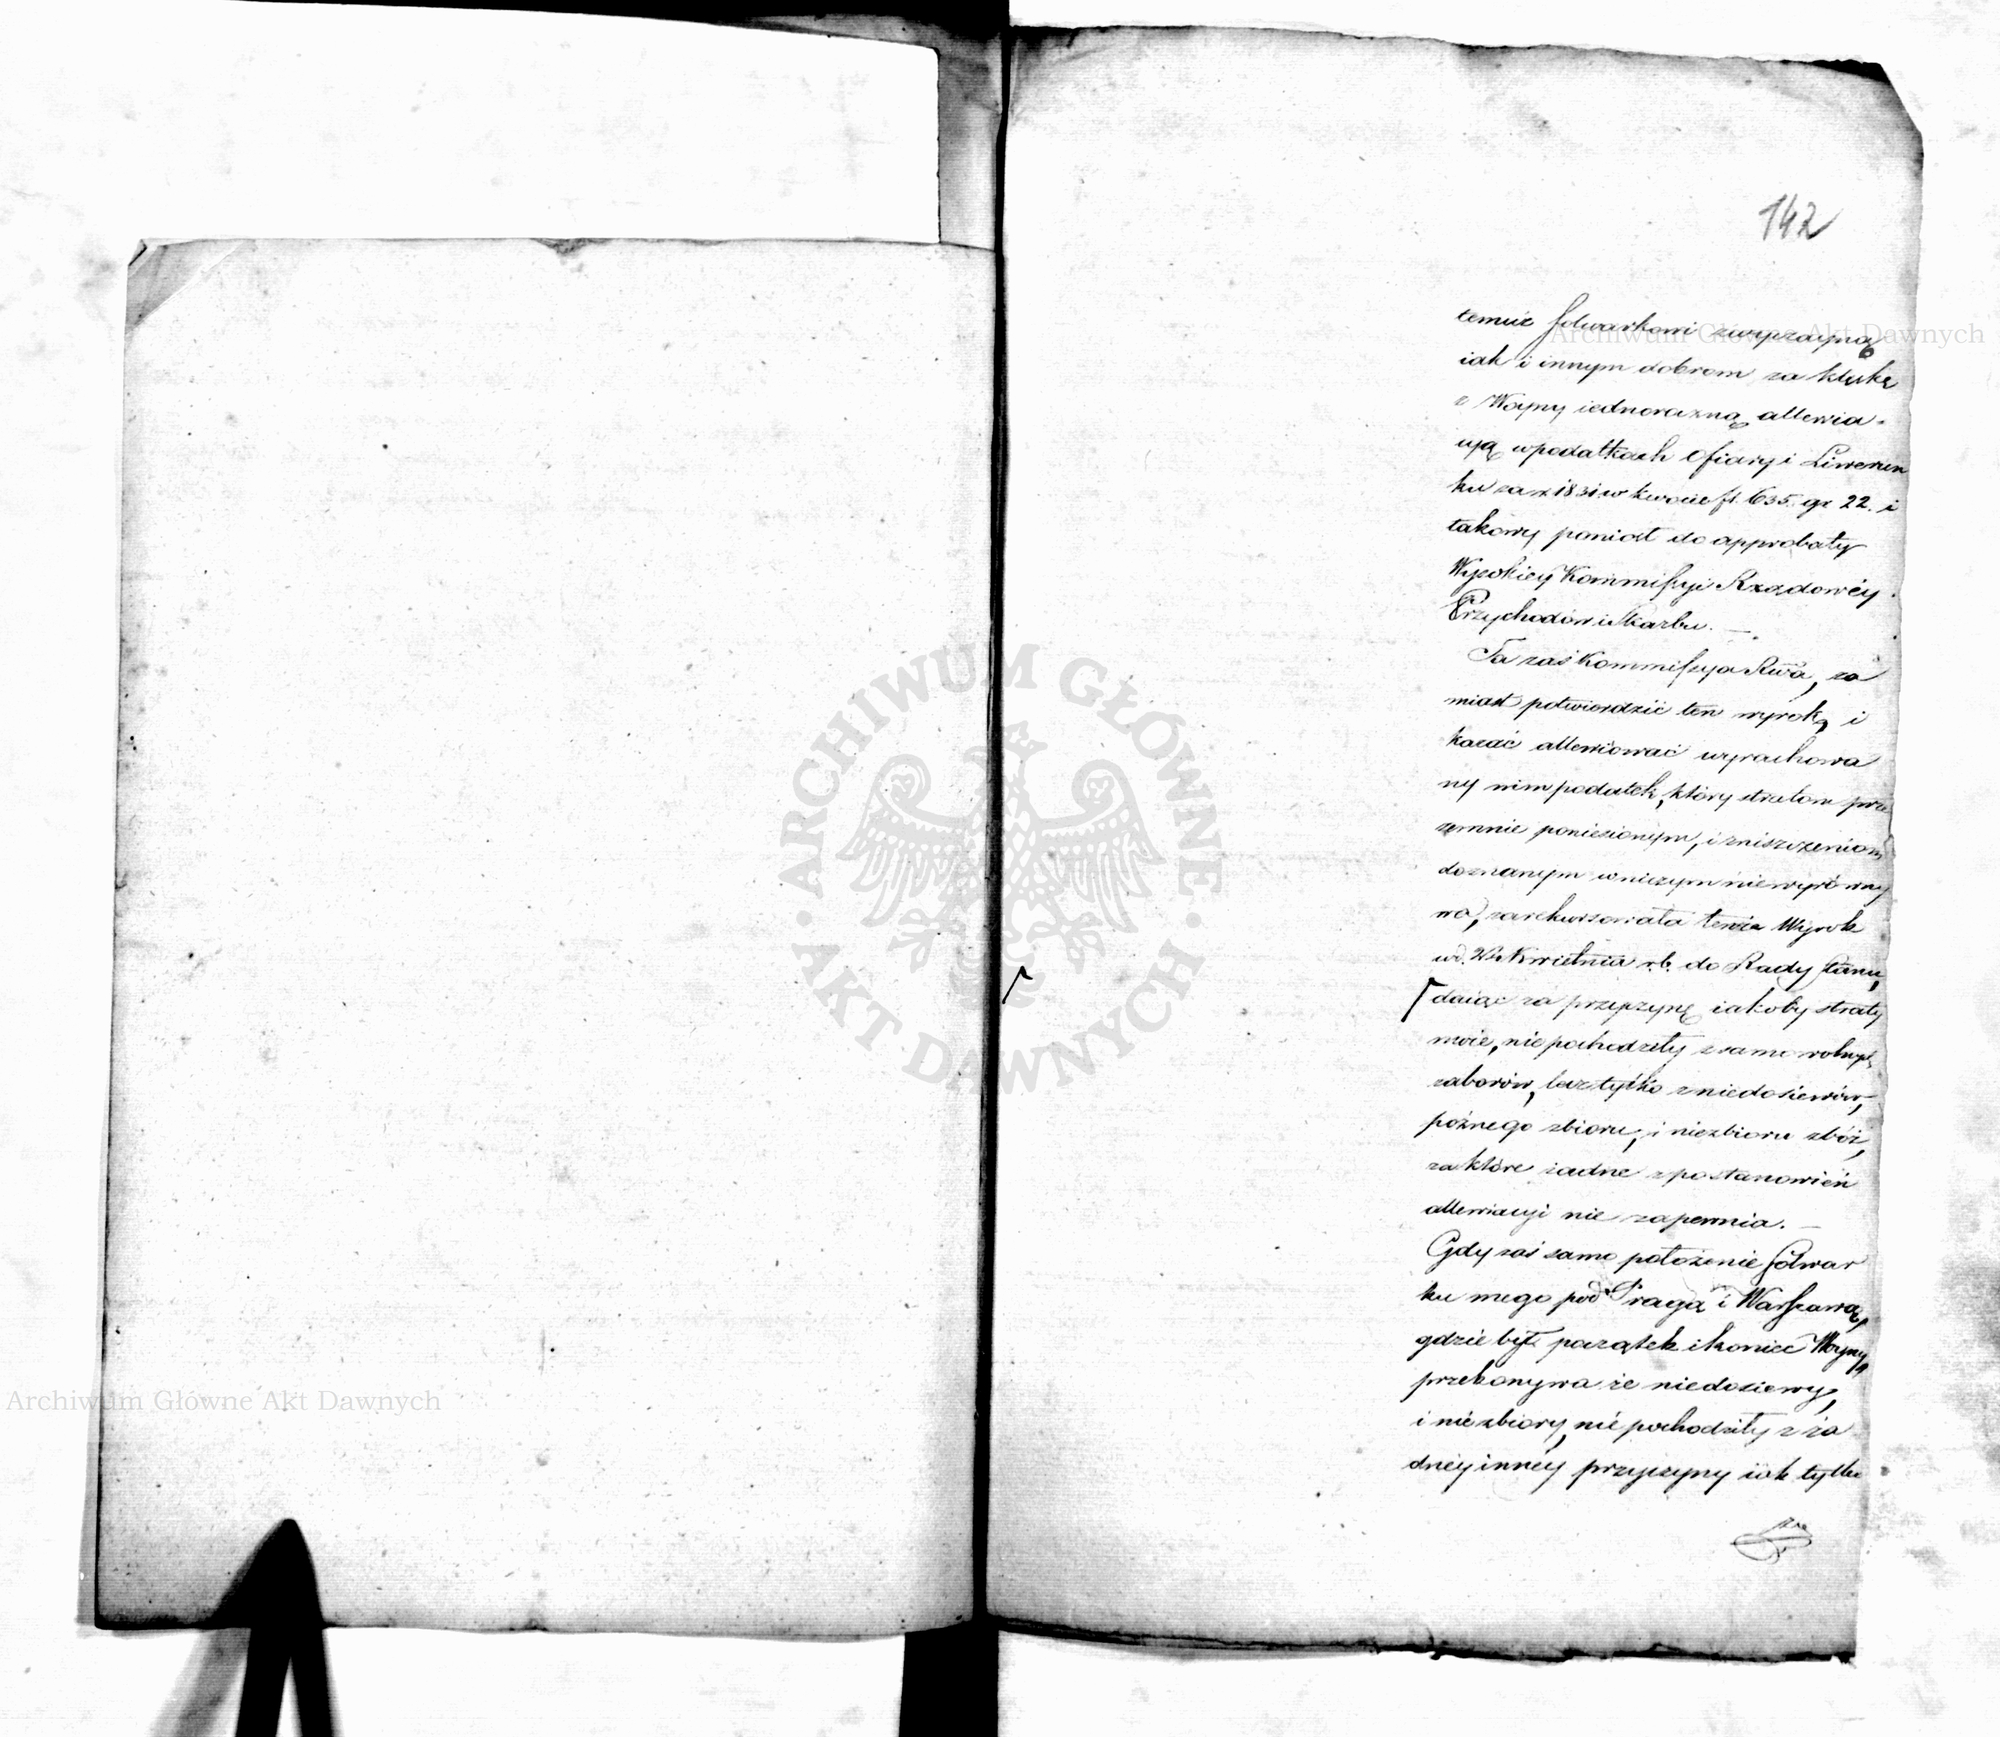 142
temuż folwarkowi zwyczayną
iak i innym dobrom za klęskę
z Woyny iednorazną allewia-
cyą w podatkach Ofiary i Liwerun
ku za r. 1831 w kwocie fl. 635. gr 22. i
takowy poniosł do approbaty
Wysokiey Kommissyi Rządowéy
Przychodów i Skarbu. —
Ta zaś Kommissya Rwa, za
miast potwierdzić ten wyrok, i
kazać allewiować wyrachowa
ny nim podatek, który stratom prze
zemnie poniesionym, i zniszczeniom
doznanym w niczym niewyrówny
wa, zarekursowała tenże Wyrok
w d. Kwietnia r.b. do Rady Stanu,
daiąc za przyczynę iakoby straty
moie, nie pochodziły z samowolnych
zaborów, lecz tylko z niedosiewów,
poźnego zbioru, i niezbioru zbóż,
za które żadne z postanowień
allewiacyi nie zapewnia. —
Gdy zaś samo położenie folwar
ku mego pod Pragą i Warszawą,
gdzie był początek i koniec Woyny,
przekonywa że niedosiewy,
i niezbiory, nie pochodziły z ża
dnéy innéy przyczyny iak tylko
Archiwum Główne Akt Dawnych
Archiwum Główne Akt Dawnych
ARCHIWUM GŁÓWNE · AKT DAWNYCH ·